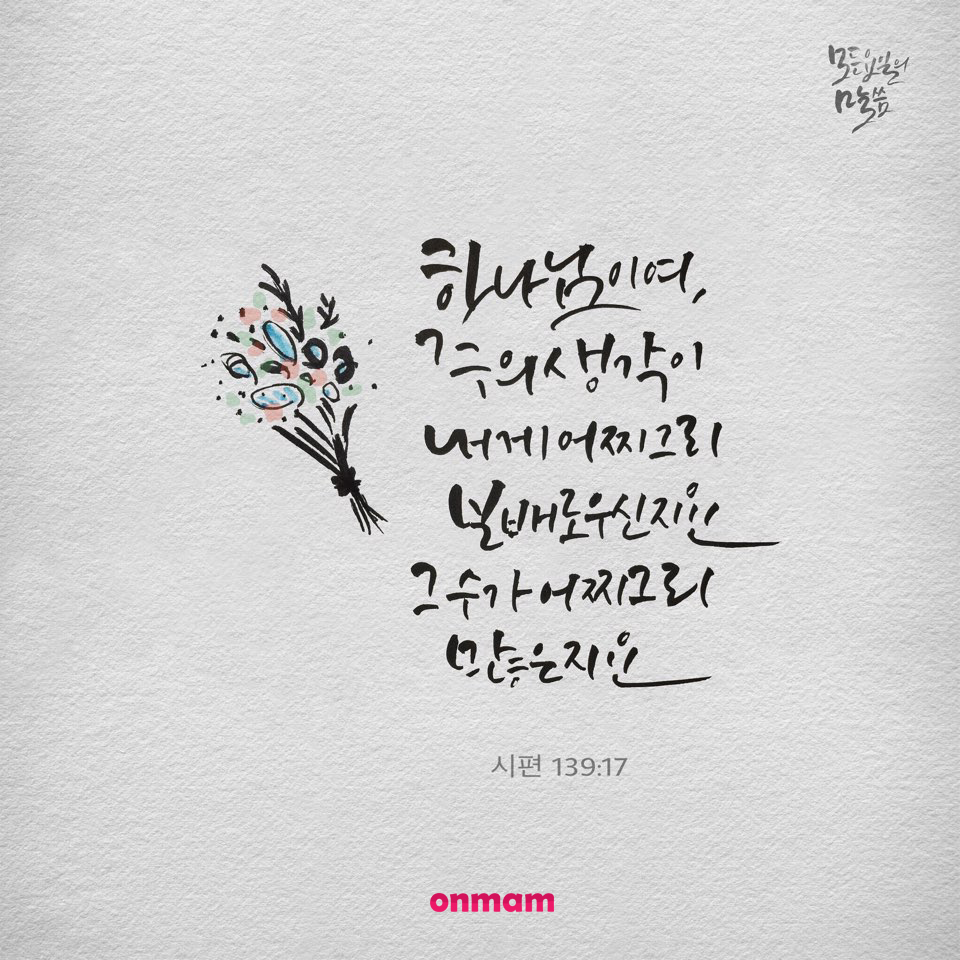 모든요일의
말씀
하나님이여,
주의 생각이
내게 어찌 그리
보배로우신지요
그 수가 어찌 그리
많은지요
시편 139:17
onmam